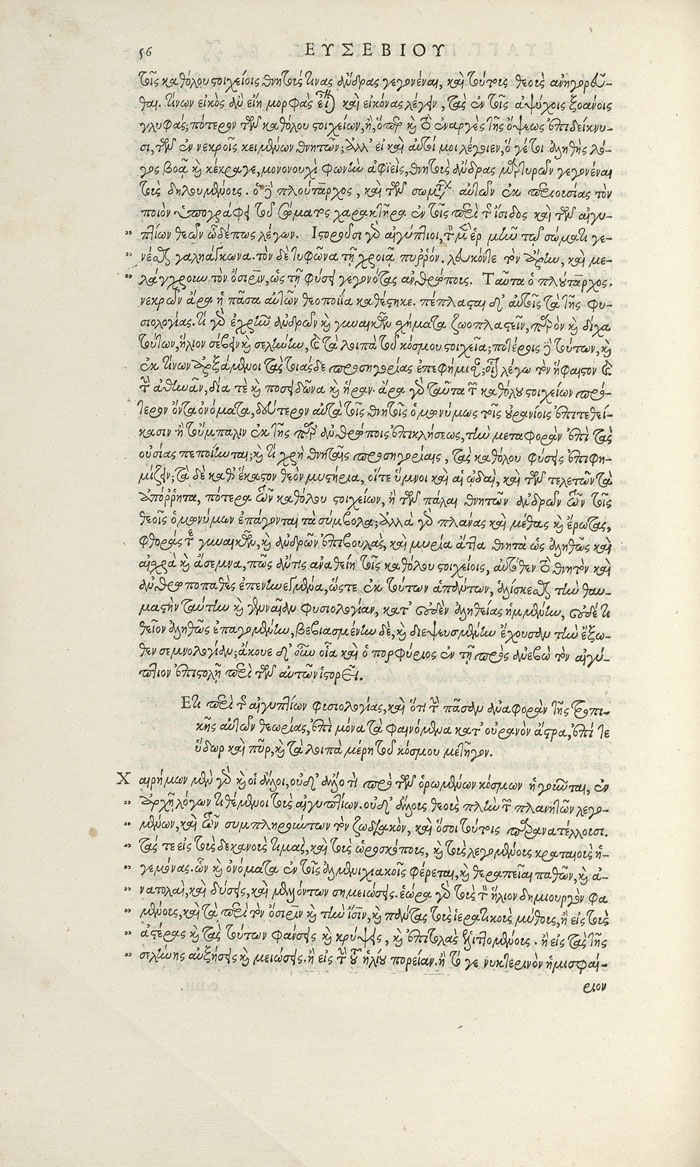 56 ΕΥΣΕΒΙΟΥ
τοῖς καθόλου στοιχείοις θνητούς τινας ἄνδρας γεγονέναι, καὶ τούτους θεοὺς ἀνηγορεῦ-
σθαι. τίνων εἰκὸς ἂν εἴη μορφὰς εἶναι καὶ εἰκόνας λέγειν, τὰς ἐν τοῖς ἀψύχοις ξοάνοις
γλυφάς; πότερον τῶν καθόλου στοιχείων, ἢ, ὅπερ καὶ τὸ ἐναργὲς τῆς ὄψεως ἐπιδείκνυ-
σι, τῶν ἐν νεκροῖς κειμένων θνητῶν; ἀλλ' εἰ καὶ αὐτοί μοι λέγοιεν, ὅ γέ τοι ἀληθὴς λό-
γος βοᾷ καὶ κέκραγε, μονονουχὶ φωνὴν ἀφιεὶς, θνητοὺς ἄνδρας μαρτυρῶν γεγονέναι
τοὺς δηλουμένους. ὁ δὲ πλούταρχος, καὶ τῶν σωμάτων αὐτῶν ἐκ περιουσίας τὸν
ποιὸν ὑπογράφει τοῦ σώματος χαρακτῆρα ἐν τοῖς περὶ τῆς ἴσιδος καὶ τῶν αἰγυ-
πτίων θεῶν ὧδέ πως λέγων. Ἱστοροῦσι γὰρ αἰγύπτιοι, τὸν μὲν ἑρμῆν τῷ σώματι γε-
νέσθαι γαλιάγκωνα. τὸν δὲ τυφῶνα τῇ χροιᾷ πυρρόν. λευκὸν δὲ τὸν ὧρον, καὶ με-
λάγχρουν τὸν ὄσιριν, ὡς τῇ φύσει γεγονότας ἀνθρώπους. Ταῦτα ὁ πλούταρχος.
νεκρῶν ἄρα ἡ πᾶσα αὐτῶν θεοποιία καθέστηκε. πέπλασται δ' αὐτοῖς τὰ τῆς φυ-
σιολογίας. τί γὰρ ἐχρῆν ἀνδρῶν καὶ γυναικῶν σχήματα ζωοπλαστεῖν, παρὸν καὶ δίχα
τούτων, ἥλιον σέβειν καὶ σελήνην, καὶ τὰ λοιπὰ τοῦ κόσμου στοιχεῖα; ποτέροις δὲ τούτων, καὶ
ἐκ τίνων ἀρξάμενοι τὰς τοιάσδε προσηγορίας ἐπεφήμισαν; οἷον λέγω τὸν ἥφαιστον καὶ
τὴν ἀθηνᾶν, δία τε καὶ ποσειδῶνα καὶ ἥραν. ἆρα γὰρ ταῦτα τῶν καθόλου στοιχείων πρό-
τερον ὄντα ὀνόματα, δεύτερον αὐτὰ τοῖς θνητοῖς ὁμωνύμως τοῖς οὐρανίοις ἐπιτεθεί-
κασιν· ἢ τοὔμπαλιν ἐκ τῆς παρ' ἀνθρώποις ἐπικλήσεως, τὴν μεταφορὰν ἐπὶ τὰς
οὐσίας πεποίηνται; καὶ τί χρὴ θνηταῖς προσηγορίαις, τὰς καθόλου φύσεις ἐπιφη-
μίζειν; τὰ δὲ καθ' ἕκαστον θεὸν μυστήρια, οἵ τε ὕμνοι καὶ αἱ ᾠδαὶ, καὶ τῶν τελετῶν τὰ
ἀπόρρητα, πότερα τῶν καθόλου στοιχείων, ἢ τῶν πάλαι θνητῶν ἀνδρῶν τῶν τοῖς
θεοῖς ὁμωνύμων ἐπάγονται τὰ σύμβολα; ἀλλὰ γὰρ πλάνας καὶ μέθας καὶ ἔρωτας,
φθορὰς τε γυναικῶν, καὶ ἀνδρῶν ἐπιβουλὰς, καὶ μυρία ἄττα θνητὰ ὡς ἀληθῶς καὶ
αἰσχρὰ καὶ ἄσεμνα, πῶς ἄν τις ἀναθείη τοῖς καθόλου στοιχείοις, αὐτόθεν τὸ θνητὸν καὶ
ἀνθρωποπαθὲς ἐπενηνεγμένα, ὥστε ἐκ τούτων ἁπάντων, ἁλίσκεσθαι τὴν θαυ-
μαστὴν ταύτην καὶ γενναίαν φυσιολογίαν, κατ' οὐδὲν ἀληθείας ἡμμένην, οὐδέ τι
θεῖον ἀληθῶς ἐπαγομένην, βεβιασμένην δὲ, καὶ διεψευσμένην ἔχουσαν τὴν ἔξω-
θεν σεμνολογίαν; ἄκουε δ' οὖν οἷα καὶ ὁ πορφύριος ἐν τῇ πρὸς ἀνεβὼ τὸν αἰγύ-
πτιον ἐπιστολῇ περὶ τῶν αὐτῶν ἱστορεῖ.
Ἔτι περὶ τῆς αἰγυπτίων φυσιολογίας, καὶ ὅτι τὴν πᾶσαν ἀναφορὰν τῆς τροπι-
κῆς αὐτῶν θεωρίας, ἐπὶ μόνα τὰ φαινόμενα κατ' οὐρανὸν ἄστρα, ἐπί τε
ὕδωρ καὶ πῦρ, καὶ τὰ λοιπὰ μέρη τοῦ κόσμου μετῆγον.
Χαιρήμων μὲν γὰρ καὶ οἱ ἄλλοι, οὐδ' ἄλλό τι πρὸ τῶν ὁρωμένων κόσμων ἡγοῦνται, ἐν
ἀρχῆς λόγων τιθέμενοι τοὺς αἰγυπτίων. οὐδ' ἄλλους θεοὺς πλὴν τῶν πλανητῶν λεγο-
μένων, καὶ τῶν συμπληρούντων τὸν ζωδιακὸν, καὶ ὅσοι τούτοις παρανατέλλουσι.
τάς τε εἰς τοὺς δεκανοὺς τομὰς, καὶ τοὺς ὡροσκόπους, καὶ τοὺς λεγομένους κραταιοὺς ἡ-
γεμόνας. ὧν καὶ ὀνόματα ἐν τοῖς ἀλμενιχιακοῖς φέρεται, καὶ θεραπεῖαι παθῶν, καὶ ἀ-
νατολαὶ, καὶ δύσεις, καὶ μελλόντων σημειώσεις. ἑώρα γὰρ τοὺς τὸν ἥλιον δημιουργὸν φα
μένους, καὶ τὰ περὶ τὸν ὄσιριν καὶ τὴν ἶσιν, καὶ πάντας τοὺς ἱερατικοὺς μύθους, ἢ εἰς τοὺς
ἀστέρας καὶ τὰς τούτων φάνσεις καὶ κρύψεις, καὶ ἐπιτολὰς ἑλιττομένους. ἢ εἰς τὰς τῆς
σελήνης αὐξήσεις καὶ μειώσεις. ἢ εἰς τὴν τοῦ ἡλίου πορείαν. ἢ τό γε νυκτερινὸν ἡμισφαί-
ριον